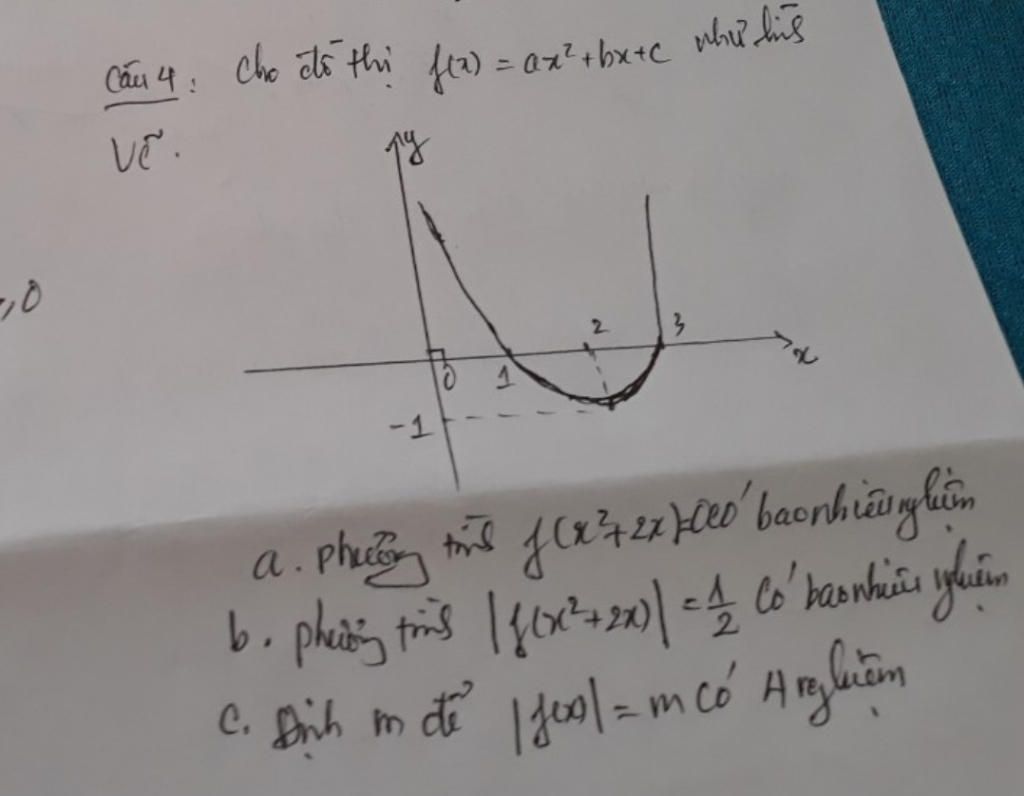 Câu 4: Cho đồ thị f(x) = ax²+bx+c như hình
Vẽ.
,0
y
2 3
0 1 x
-1
a. phương trình f(x²+2x)=0 có bao nhiêu nghiệm
b. phương trình |f(x²+2x)| = 1/2 có bao nhiêu nghiệm
c. Định m để |f(x)| = m có 4 nghiệm